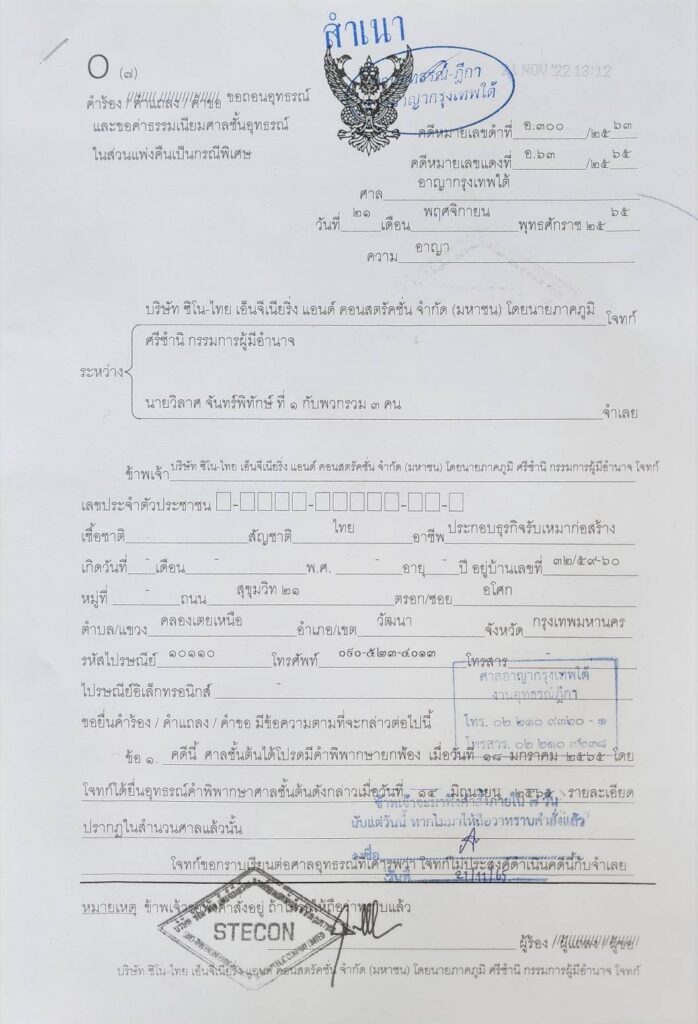 สำเนา
21 NOV '22 13:12
O (๗)
อุทธรณ์-ฎีกา
อาญากรุงเทพใต้
คำร้อง / คำแถลง / คำขอ ขอถอนอุทธรณ์
และขอค่าธรรมเนียมศาลชั้นอุทธรณ์
ในส่วนแพ่งคืนเป็นกรณีพิเศษ
คดีหมายเลขดำที่ อ.๓๐๐ /๒๕ ๖๓
คดีหมายเลขแดงที่ อ.๖๓ /๒๕ ๖๕
ศาล อาญากรุงเทพใต้
วันที่ ๒๑ เดือน พฤศจิกายน พุทธศักราช ๒๕ ๖๕
ความ อาญา
บริษัท ซิโน-ไทย เอ็นจีเนียริ่ง แอนด์ คอนสตรัคชั่น จำกัด (มหาชน) โดยนายภาคภูมิ โจทก์
ศรีชำนิ กรรมการผู้มีอำนาจ
ระหว่าง
นายวิลาศ จันทร์พิทักษ์ ที่ ๑ กับพวกรวม ๓ คน จำเลย
ข้าพเจ้า บริษัท ซิโน-ไทย เอ็นจีเนียริ่ง แอนด์ คอนสตรัคชั่น จำกัด (มหาชน) โดยนายภาคภูมิ ศรีชำนิ กรรมการผู้มีอำนาจ โจทก์
เลขประจำตัวประชาชน
เชื้อชาติ สัญชาติ ไทย อาชีพ ประกอบธุรกิจรับเหมาก่อสร้าง
เกิดวันที่ - เดือน - พ.ศ. - อายุ - ปี อยู่บ้านเลขที่ ๓๒/๕๙-๖๐
หมู่ที่ - ถนน สุขุมวิท ๒๑ ตรอก/ซอย อโศก
ตำบล/แขวง คลองเตยเหนือ อำเภอ/เขต วัฒนา จังหวัด กรุงเทพมหานคร
รหัสไปรษณีย์ ๑๐๑๑๐ โทรศัพท์ ๐๙๐-๕๒๓-๔๐๑๓ โทรสาร -
ไปรษณีย์อิเล็กทรอนิกส์ -
ศาลอาญากรุงเทพใต้
งานอุทธรณ์ฎีกา
โทร. ๐๒ ๒๑๐ ๙๓๖๐ - ๑
โทรสาร. ๐๒ ๒๑๐ ๙๒๓๘
ขอยื่นคำร้อง / คำแถลง / คำขอ มีข้อความตามที่จะกล่าวต่อไปนี้
ข้อ ๑. คดีนี้ ศาลชั้นต้นได้โปรดมีคำพิพากษายกฟ้อง เมื่อวันที่ ๑๘ มกราคม ๒๕๖๕ โดย
โจทก์ได้ยื่นอุทธรณ์คำพิพากษาศาลชั้นต้นดังกล่าวเมื่อวันที่ ๑๔ มิถุนายน ๒๕๖๕ รายละเอียด
ข้าพเจ้าจะมาฟังคำสั่งภายใน ๗ วัน
ปรากฏในสำนวนศาลแล้วนั้น
นับแต่วันนี้ หากไม่มาให้ถือว่าทราบคำสั่งแล้ว
ลงชื่อ
โจทก์ขอกราบเรียนต่อศาลอุทธรณ์ที่เคารพว่า โจทก์ไม่ประสงค์ดำเนินคดีนี้กับจำเลย
วันที่ 21/11/65
หมายเหตุ ข้าพเจ้ารอฟังคำสั่งอยู่ ถ้าไม่รอให้ถือว่าทราบแล้ว
STECON
ผู้ร้อง / ผู้แถลง / ผู้ขอ
บริษัท ซิโน-ไทย เอ็นจีเนียริ่ง แอนด์ คอนสตรัคชั่น จำกัด (มหาชน) โดยนายภาคภูมิ ศรีชำนิ กรรมการผู้มีอำนาจ โจทก์